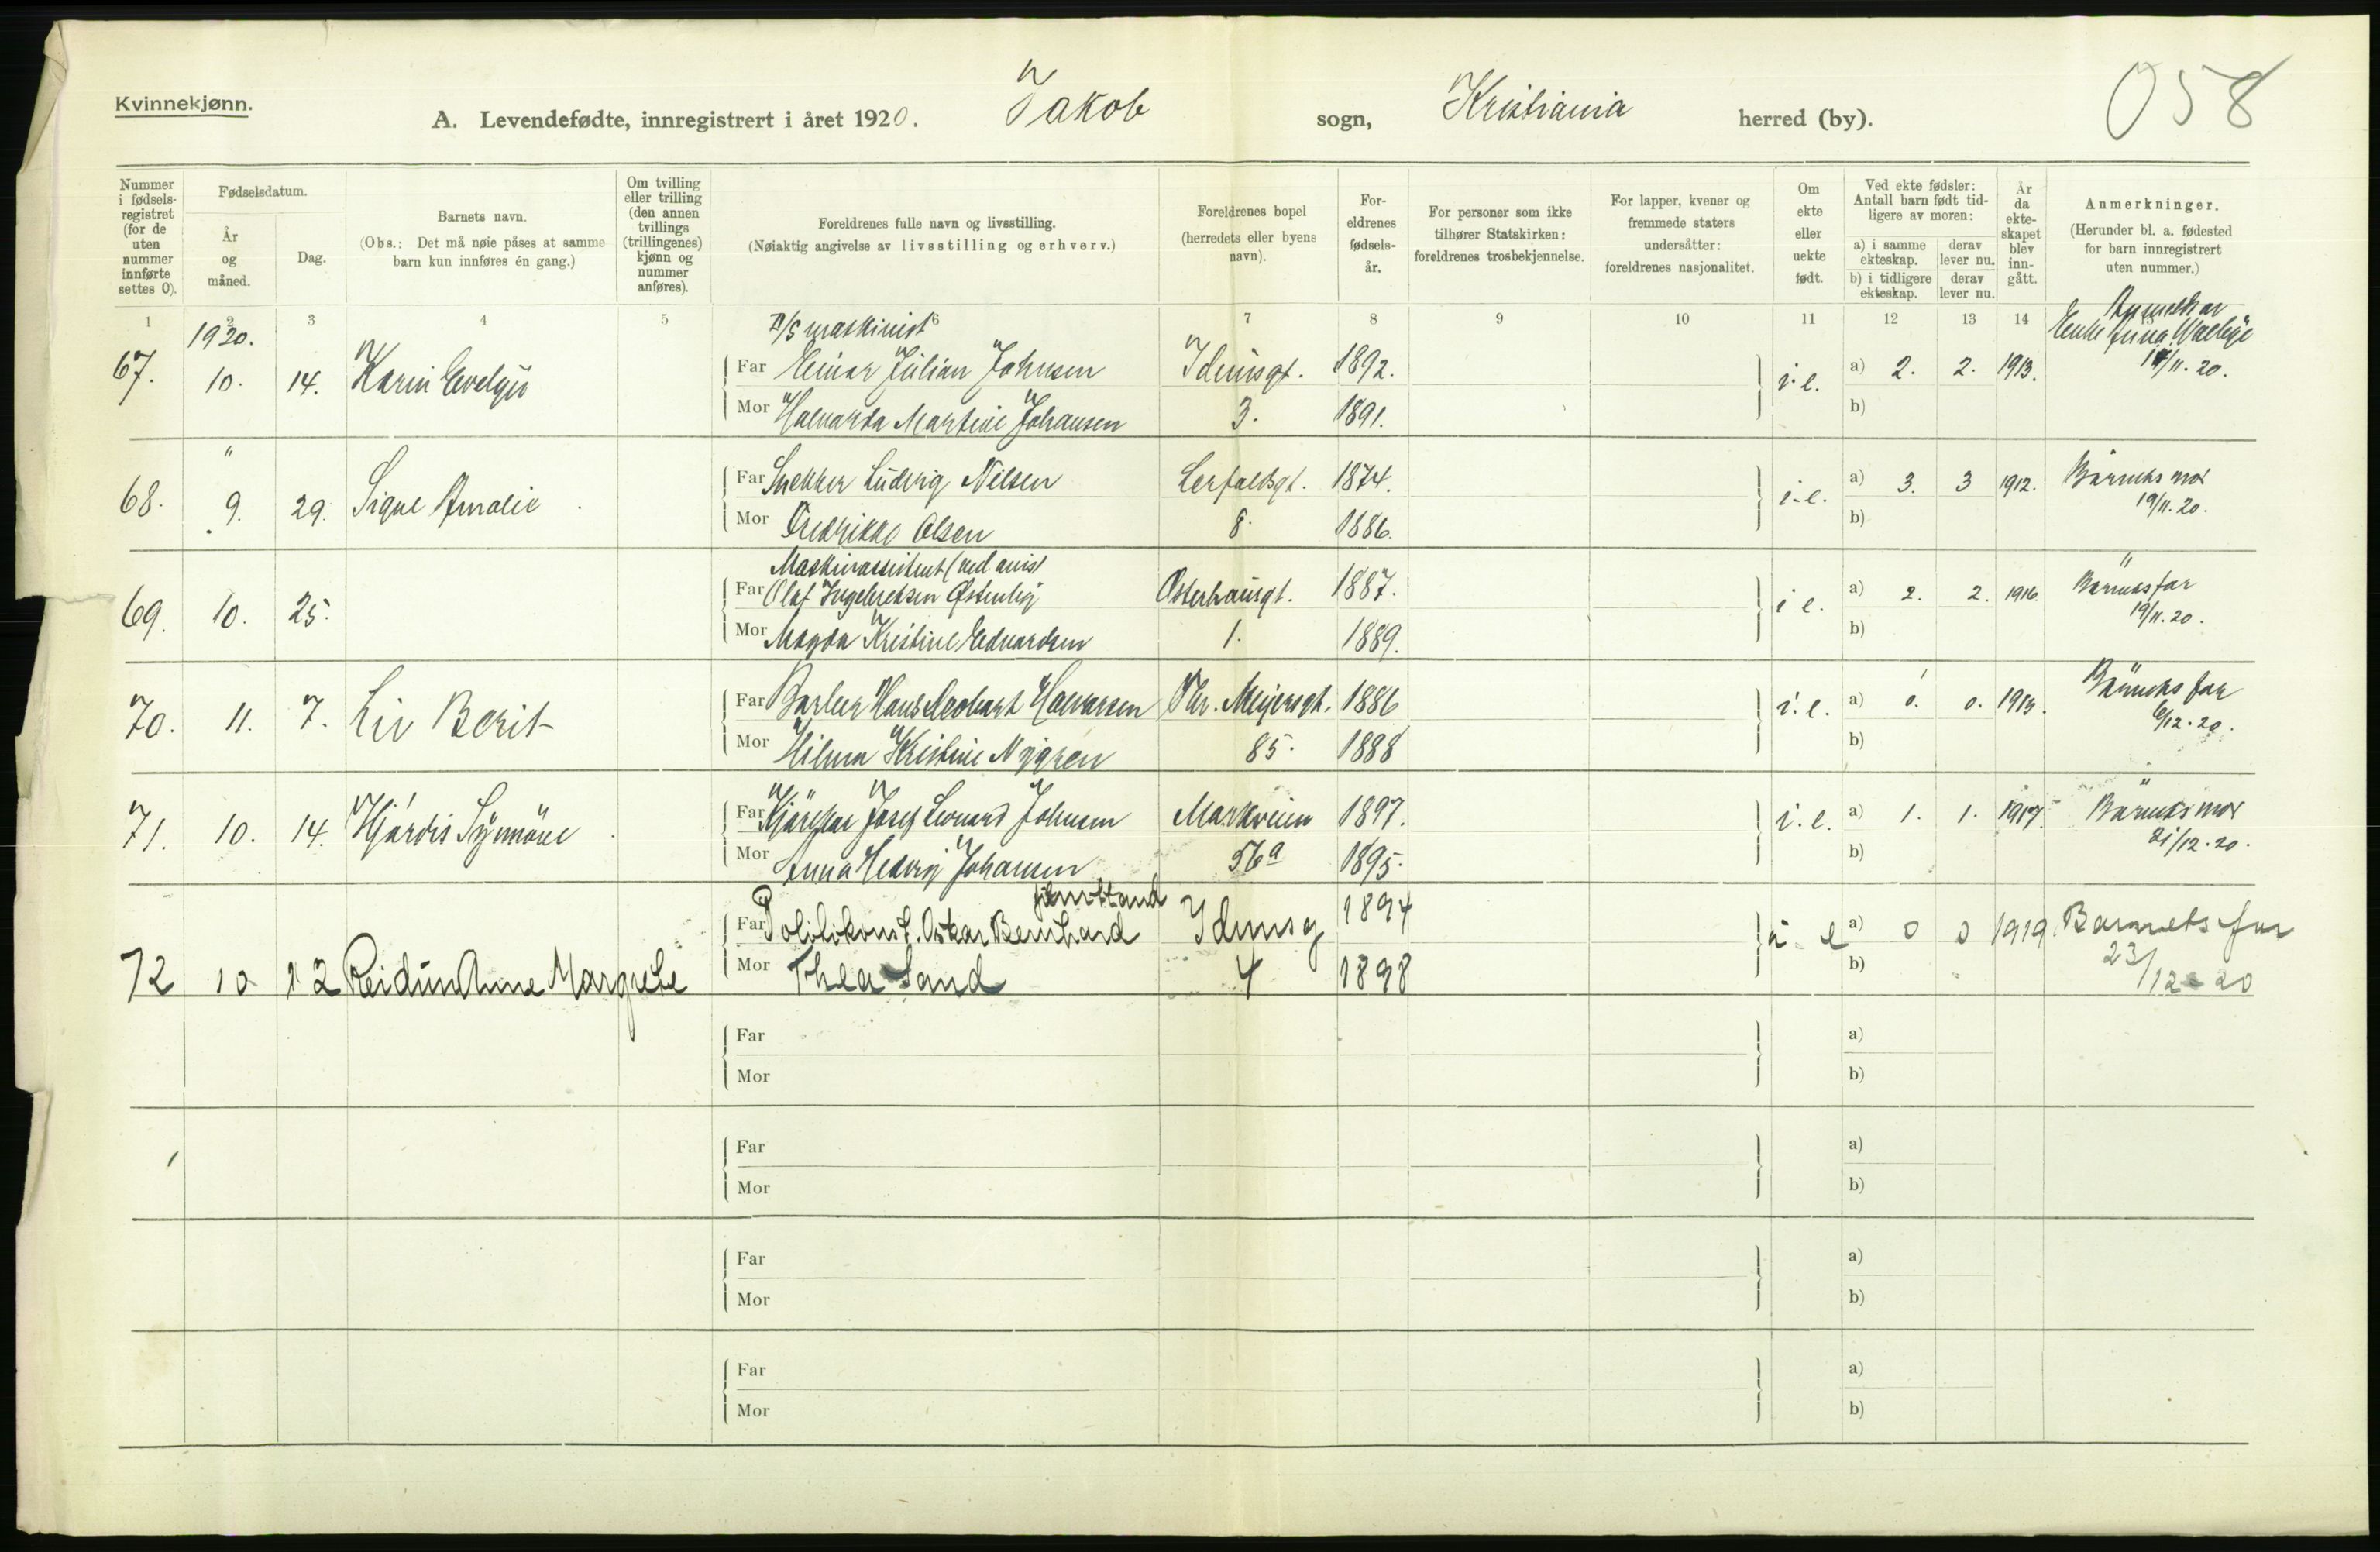 Kvinnekjønn.
A. Levendefødte, innregistrert i året 1920. Jakob sogn, Kristiania herred (by).
058
Nummer i fødsels-registret (for de uten nummer innførte settes 0).
Fødselsdatum.
År og måned.
Dag.
Barnets navn.
(Obs.: Det må nøie påses at samme barn kun innføres én gang.)
Om tvilling eller trilling (den annen tvillings (trillingenes) kjønn og nummer anføres).
Foreldrenes fulle navn og livsstilling.
(Nøiaktig angivelse av livsstilling og erhverv.)
Foreldrenes bopel (herredets eller byens navn).
For-eldrenes fødsels-år.
For personer som ikke tilhører Statskirken: foreldrenes trosbekjennelse.
For lapper, kvener og fremmede staters undersåtter: foreldrenes nasjonalitet.
Om ekte eller uekte født.
Ved ekte fødsler: Antall barn født tid-ligere av moren:
a) i samme ekteskap.
derav lever nu.
b) i tidligere ekteskap.
derav lever nu.
År da ekte-skapet blev inn-gått.
Anmerkninger.
(Herunder bl. a. fødested for barn innregistrert uten nummer.)
1 2 3 4 5 6 7 8 9 10 11 12 13 14
1920.
maskinist
67. 10. 14. Karin Evelyn
Far Einar Julian Johnsen Idunsgt. 1892. i. e. a) 2. 2. 1913.
Mor Halvarda Martine Johansen 3. 1891. b)
Enke Anna
/11. 20.
"
68. 9. 29. Signe Amalie
Far Snekker Ludvig Nilsen Lerfaldsgt. 1874. i. e. a) 3. 3 1912. Barnets mor
Mor Fredrikke Olsen 8. 1886. b) 19/11. 20.
69. 10. 25.
Maskinassistent (ved avis)
Far Olaf Ingebretsen Østenlig Osterhausgt. 1887. i e. a) 2. 2. 1916. Barnets far
Mor Magda Kristine Edvardsen 1. 1889. b) 19/11. 20.
70. 11. 7. Liv Berit
Far Barber Hans Halvorsen Thr. Meyersgt. 1886 i. e. a) 0. 0. Barnets far
Mor Hilma Kristine Nygren 85. 1888 b) 6/12. 20.
71. 10. 14. Hjørdis Synnöve
Far Kjörekar Josef Leonard Johnsen Markveien 1897. i. e. a) 1. 1. 1917. Barnets mor
Mor Anna Hedvig Johansen 56a 1895. b) 21/12. 20.
72 10 12 Reidun Anne Margrete
Far Politikonst. Oskar Bernhard Idunsg 1894 i e a) 0 0 1919. Barnets far
Mor Thea Sand 4 1898 b) 23/12-20
Far a)
Mor b)
Far a)
Mor b)
Far a)
Mor b)
Far a)
Mor b)